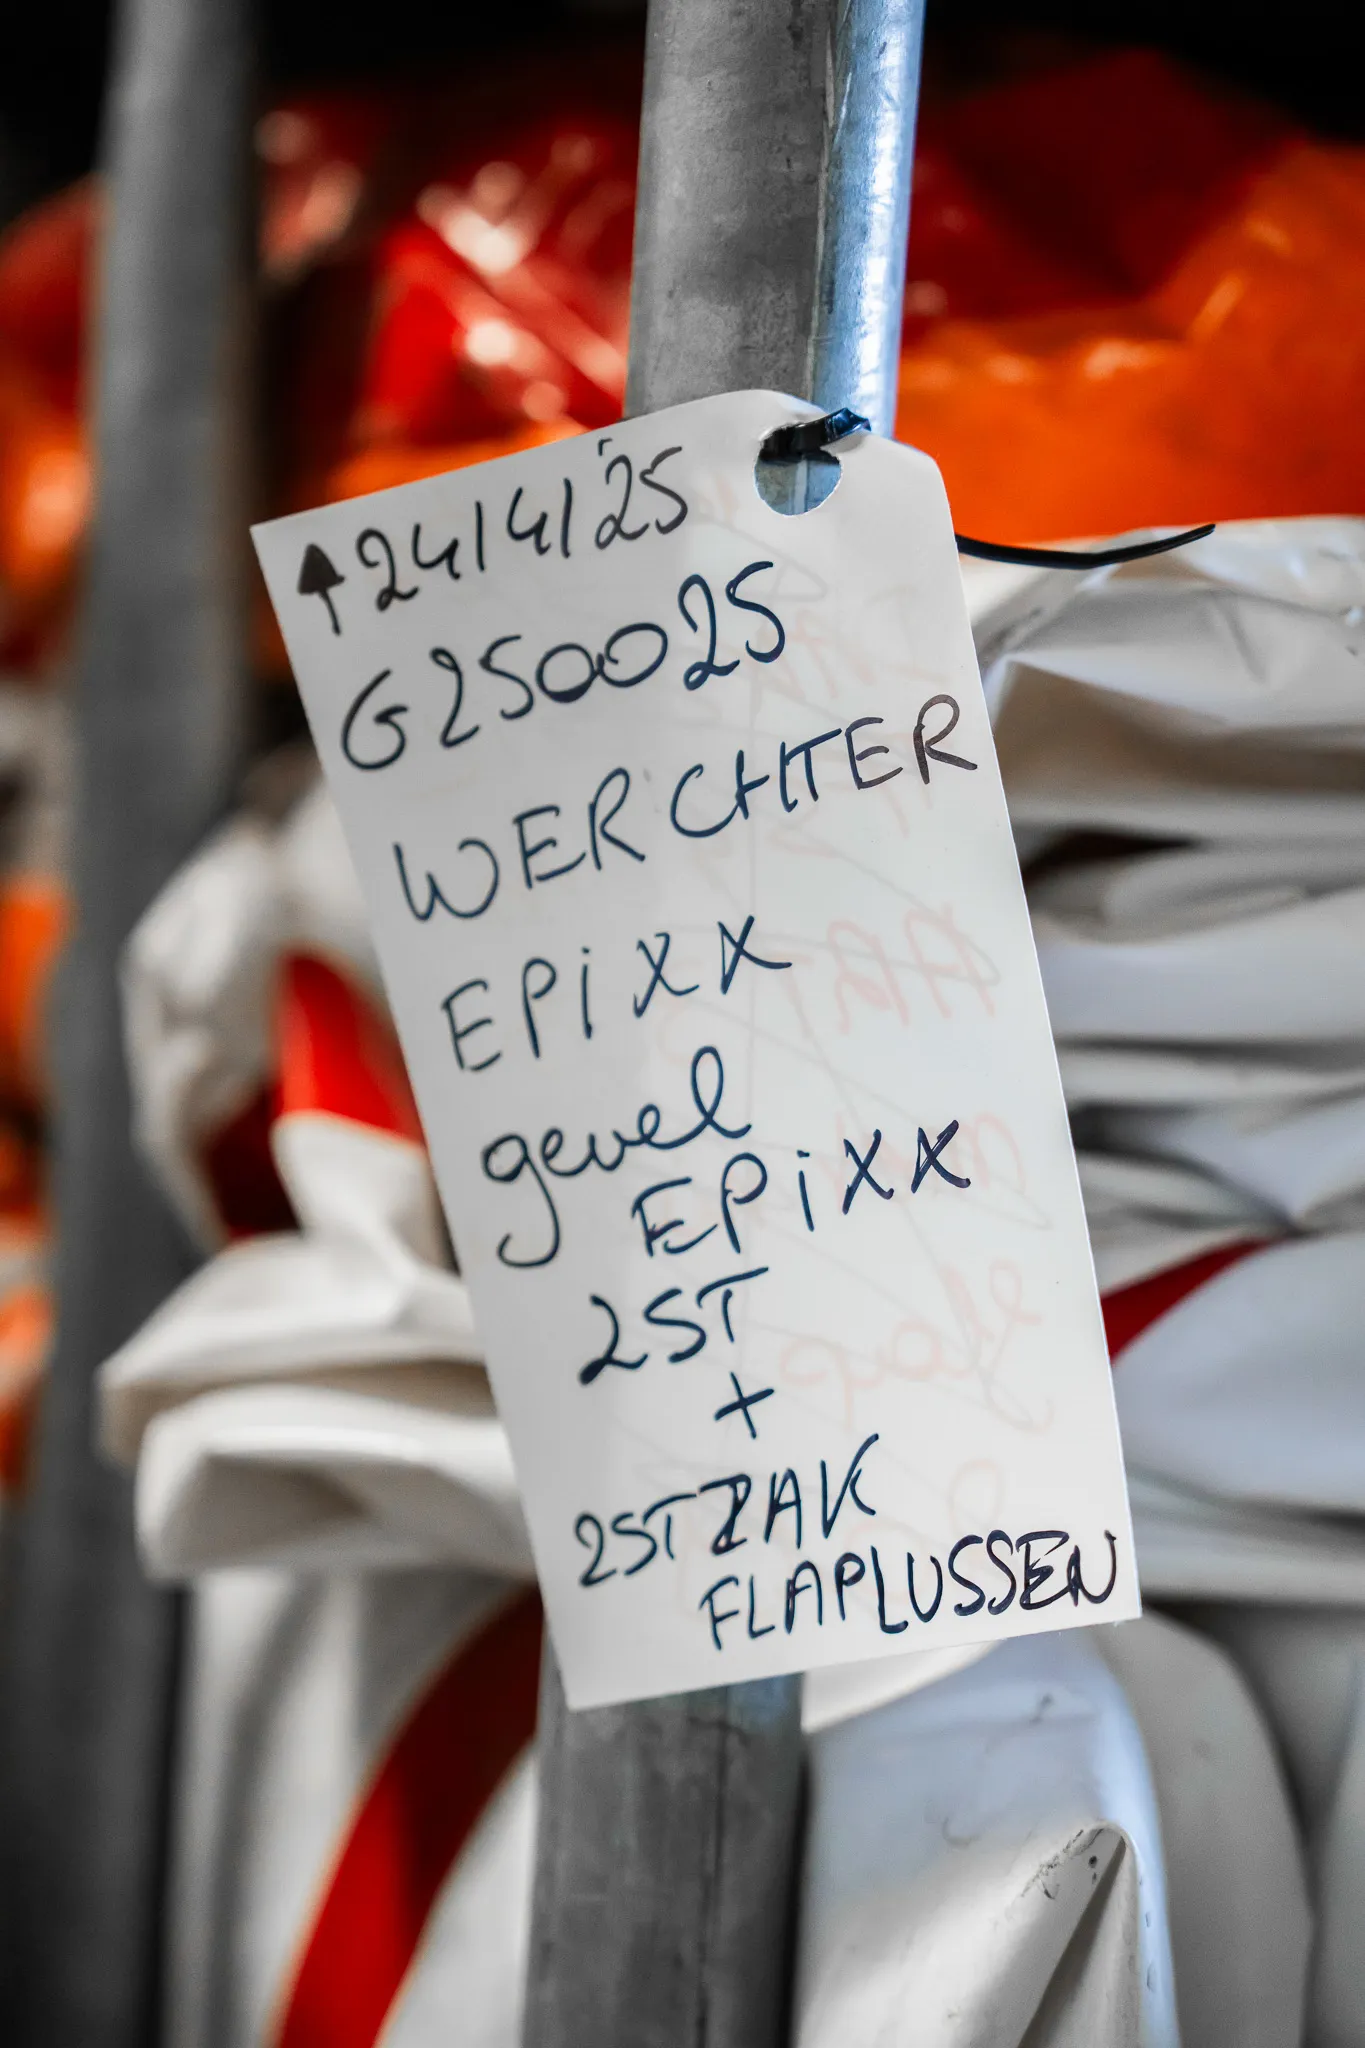 ↑24/4/25
G250025
WERCHTER
EPiXX
gevel
EPiXX
2ST
+
2ST ZAK
FLAPLUSSEN